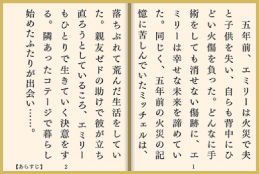 五年前、エミリーは火災で夫
と子供を失い、自らも背中にひ
どい火傷を負った。どんなに手
術をしても消せない傷跡に、エ
ミリーは幸せな未来を諦めてい
た。同じく、五年前の火災の記
憶に苦しんでいたミッチェルは、
1
落ちぶれて荒んだ生活をしてい
た。親友ゼドの助けで彼が立ち
直ろうとしているころ、エミリー
もひとりで生きていく決意をす
る。隣あったコテージで暮らし
始めたふたりが出会い……。
【あらすじ】
2